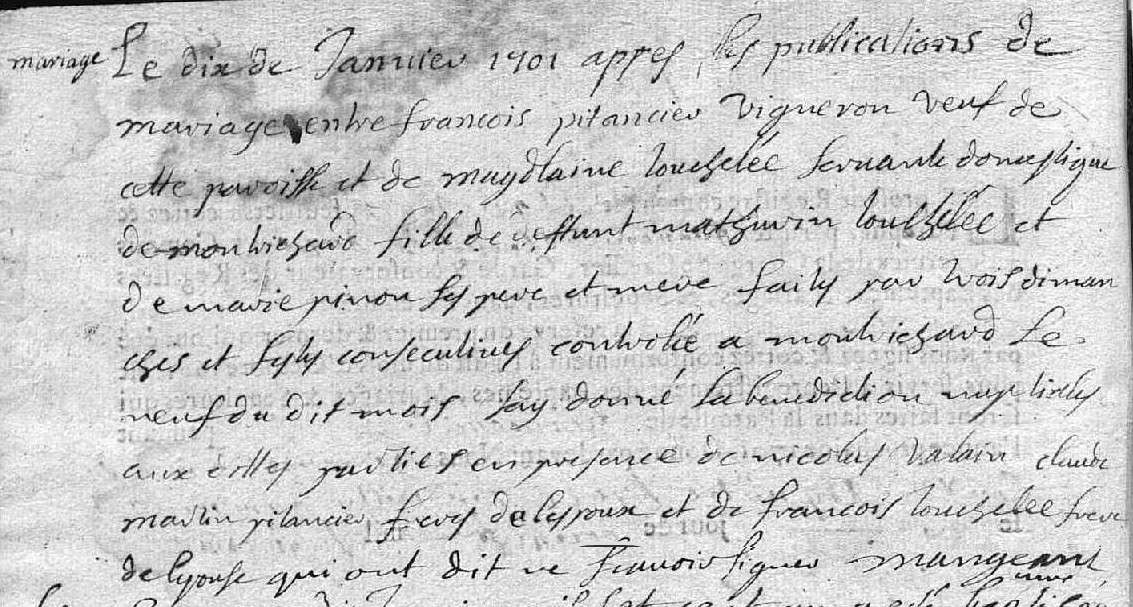 mariage Le dix de Janvier 1701 appres les publications de
mariage entre francois pitancier vigneron veuf de
cette paroisse et de magdlaine touchelee servante domestique
de montrichard fille de deffunt mathurin touchelee et
de marie pinon ses pere et mere faites par trois diman
ches et festes consecutives controlé a montrichard le
neuf du dit mois Jay donné la benediction nuptialles
aux dittes parties en presence de nicolas valain claude
martin pitancier freres de lespoux et de francois touchelee frere
de lepouse qui ont dit ne scavoir signer mangeant